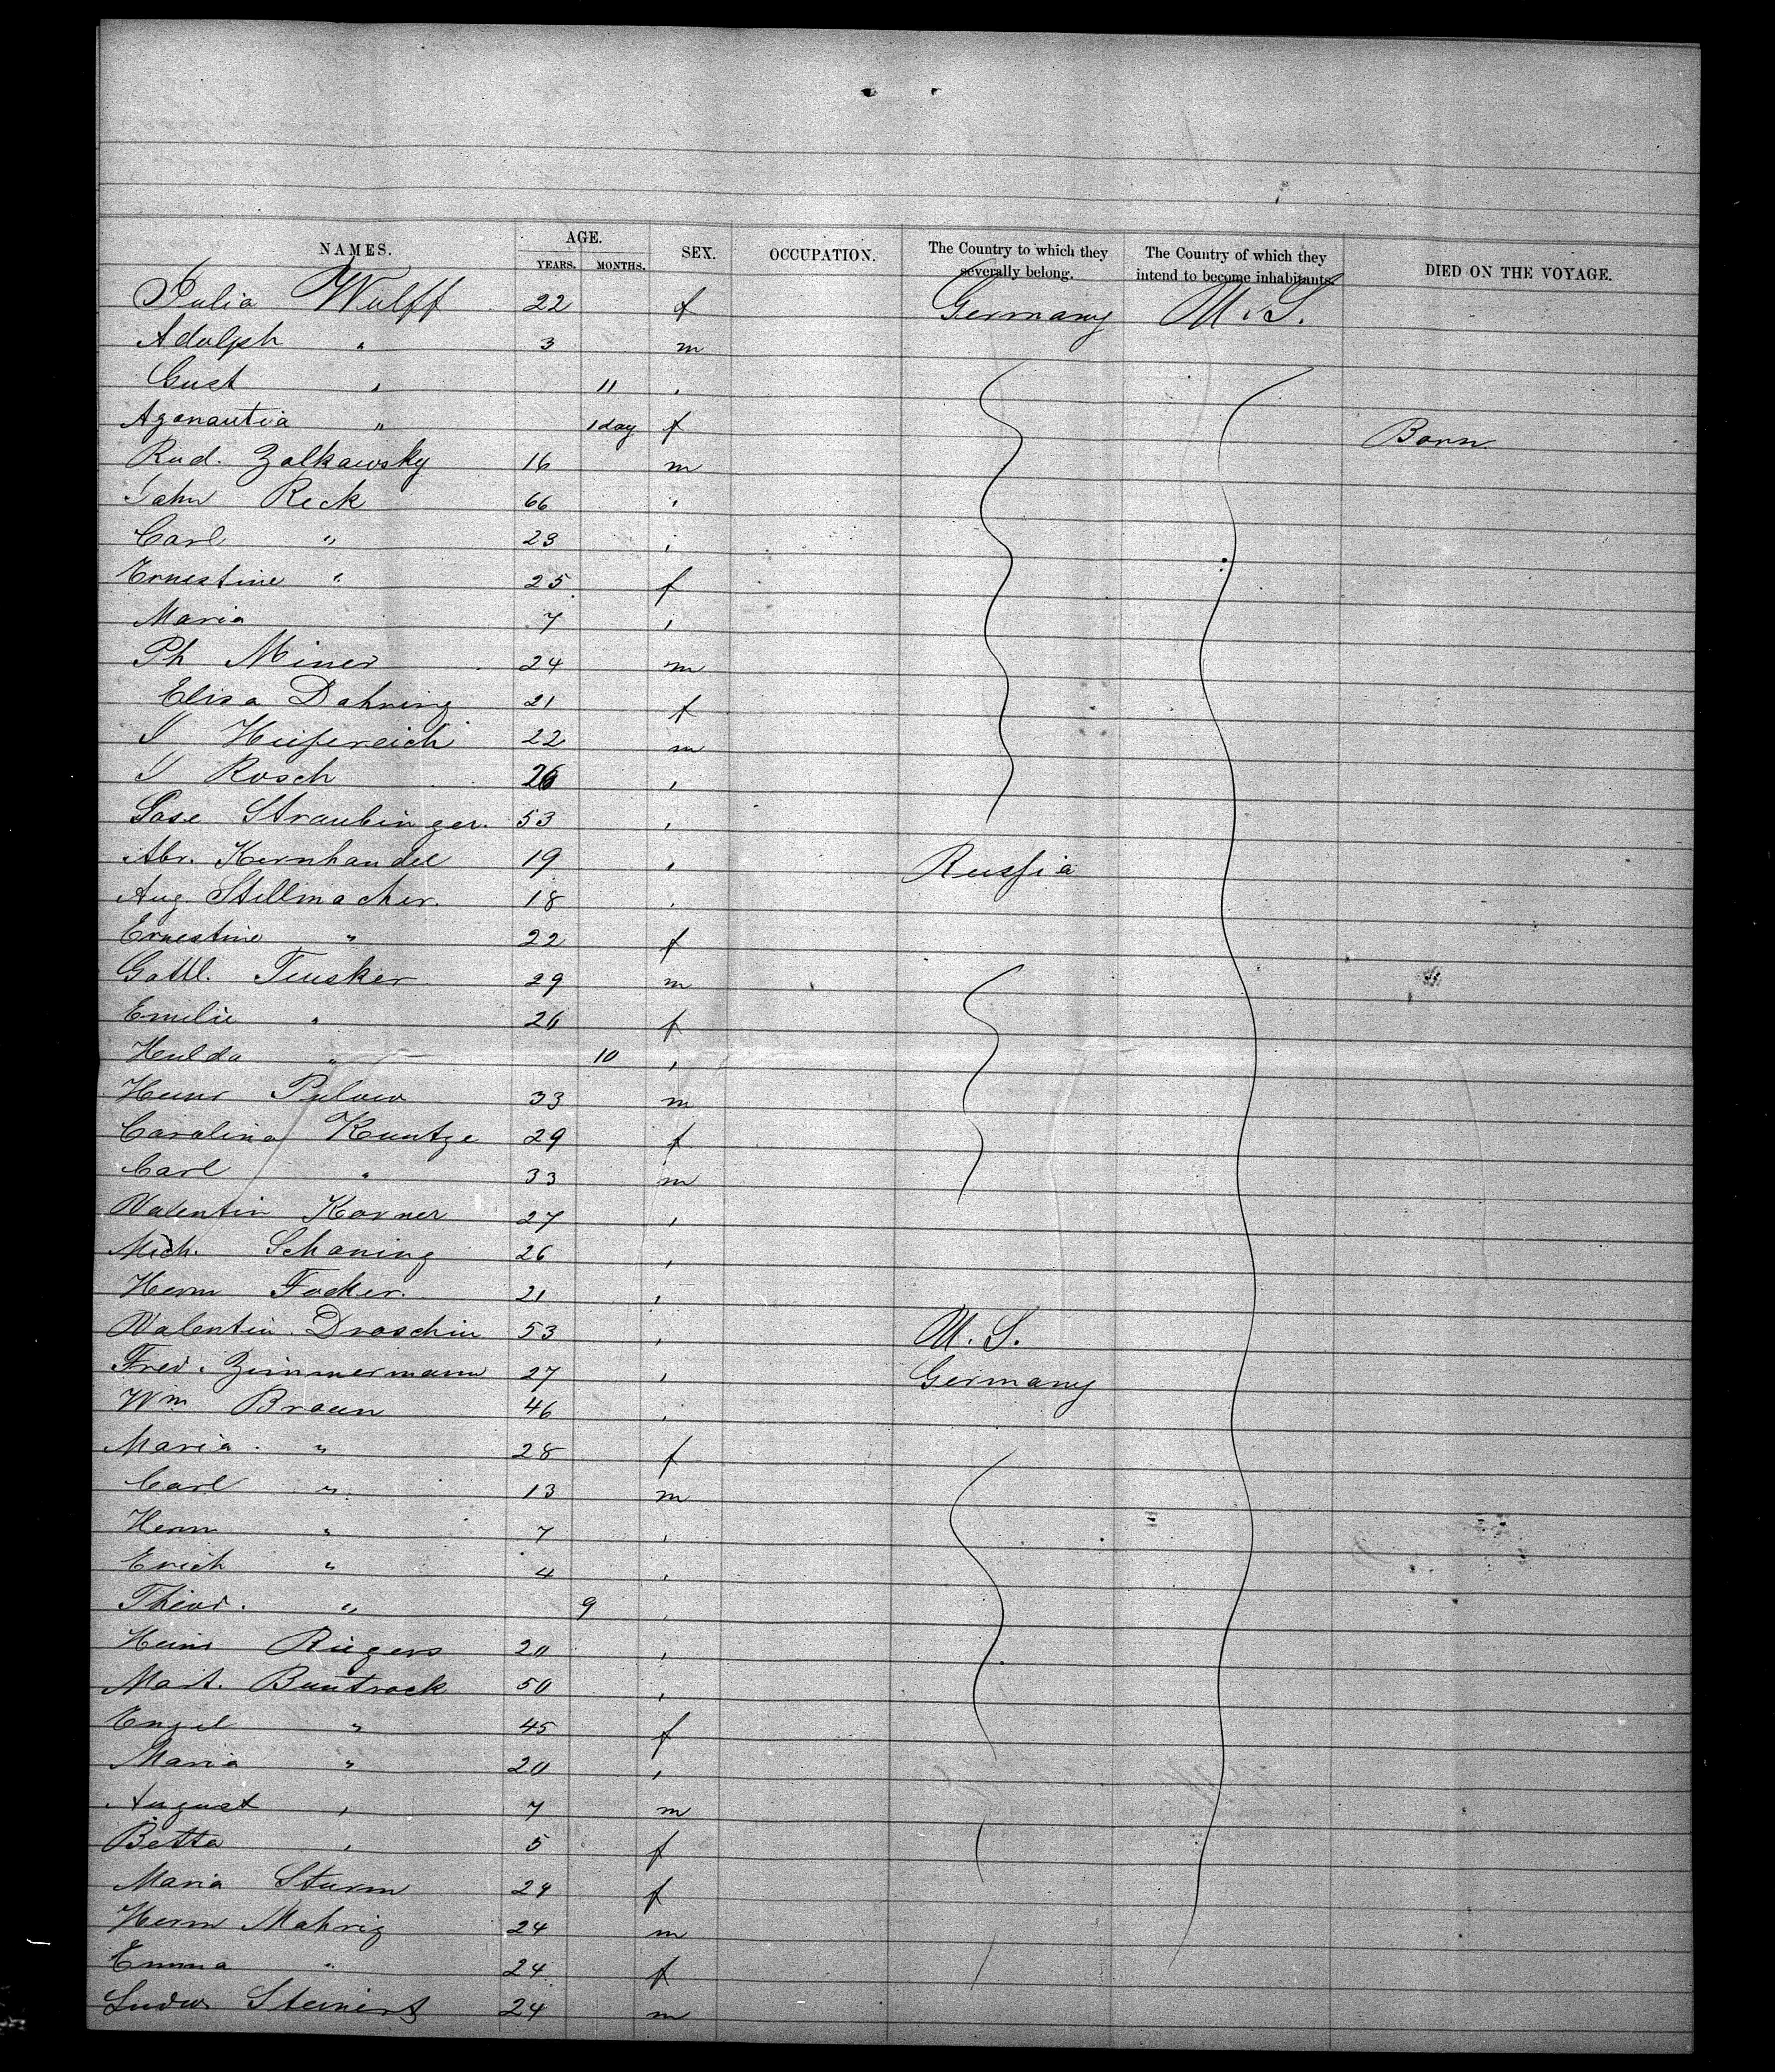 NAMES. AGE. YEARS. MONTHS. SEX. OCCUPATION. The Country to which they severally belong. The Country of which they intend to become inhabitants. DIED ON THE VOYAGE.
Julia Wulff 22 f Germany U.S.
Adolph " 3 m
Gust " 11 "
Agonautia " 1 day f Born
Rud. Zalkawsky 16 m
John Reck 66 "
Carl " 23 "
Ernestine " 25 f
Maria 7 "
Ph Miner 24 m
Elisa Dahning 21 f
J Heifereich 22 m
J Rosch 26 "
Jose Straubinger. 53 "
Abr. Kernhandel 19 " Russia
Aug. Stellmacher. 18 "
Ernestine " 22 f
Gottl. Teusker 29 m
Emilie " 26 f
Hulda " 10 "
Heinr 33 m
Carolina Kuntze 29 f
Carl " 33 m
Valentin Korner 27 "
Mich. Schaning 26 "
Herm Focker. 21 "
Valentin Droschin 53 " U.S.
Fred. Zimmermann 27 " Germany
Wm Braun 46 "
Maria " 28 f
Carl " 13 m
Herm " 7 "
Erich " 4 "
Theod. " 9 "
Heinr Rügers 20 "
Mart. Buntrock 50 "
Engel " 45 f
Maria " 20 "
August " 7 m
Betta " 5 f
Maria Sturm 24 f
Herm Mahrig 24 m
Emma " 24 f
Ludw. Steinert 24 m